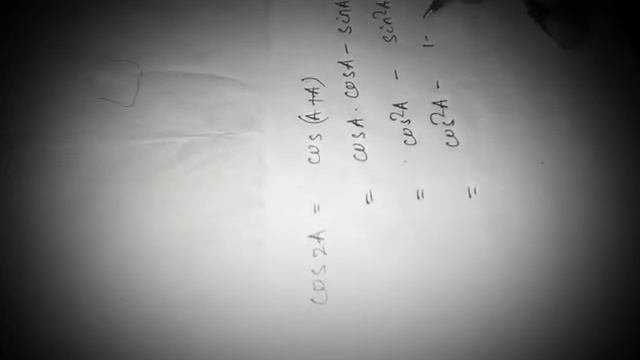 cos 2A = cos (A+A)
= cosA · cosA - sinA
= cos²A - sin²A
= cos²A - 1-